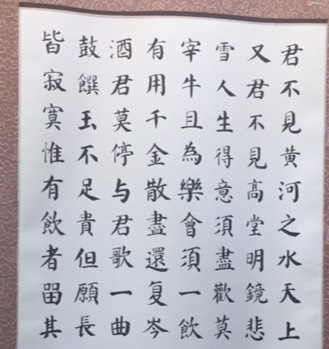 君不見黄河之水天上
又君不見高堂明鏡悲
雪人生得意須盡歡莫
宰牛且為樂會須一飲
有用千金散盡還复岑
酒君莫停与君歌一曲
鼓饌玉不足貴但願長
皆寂寞惟有飲者留其